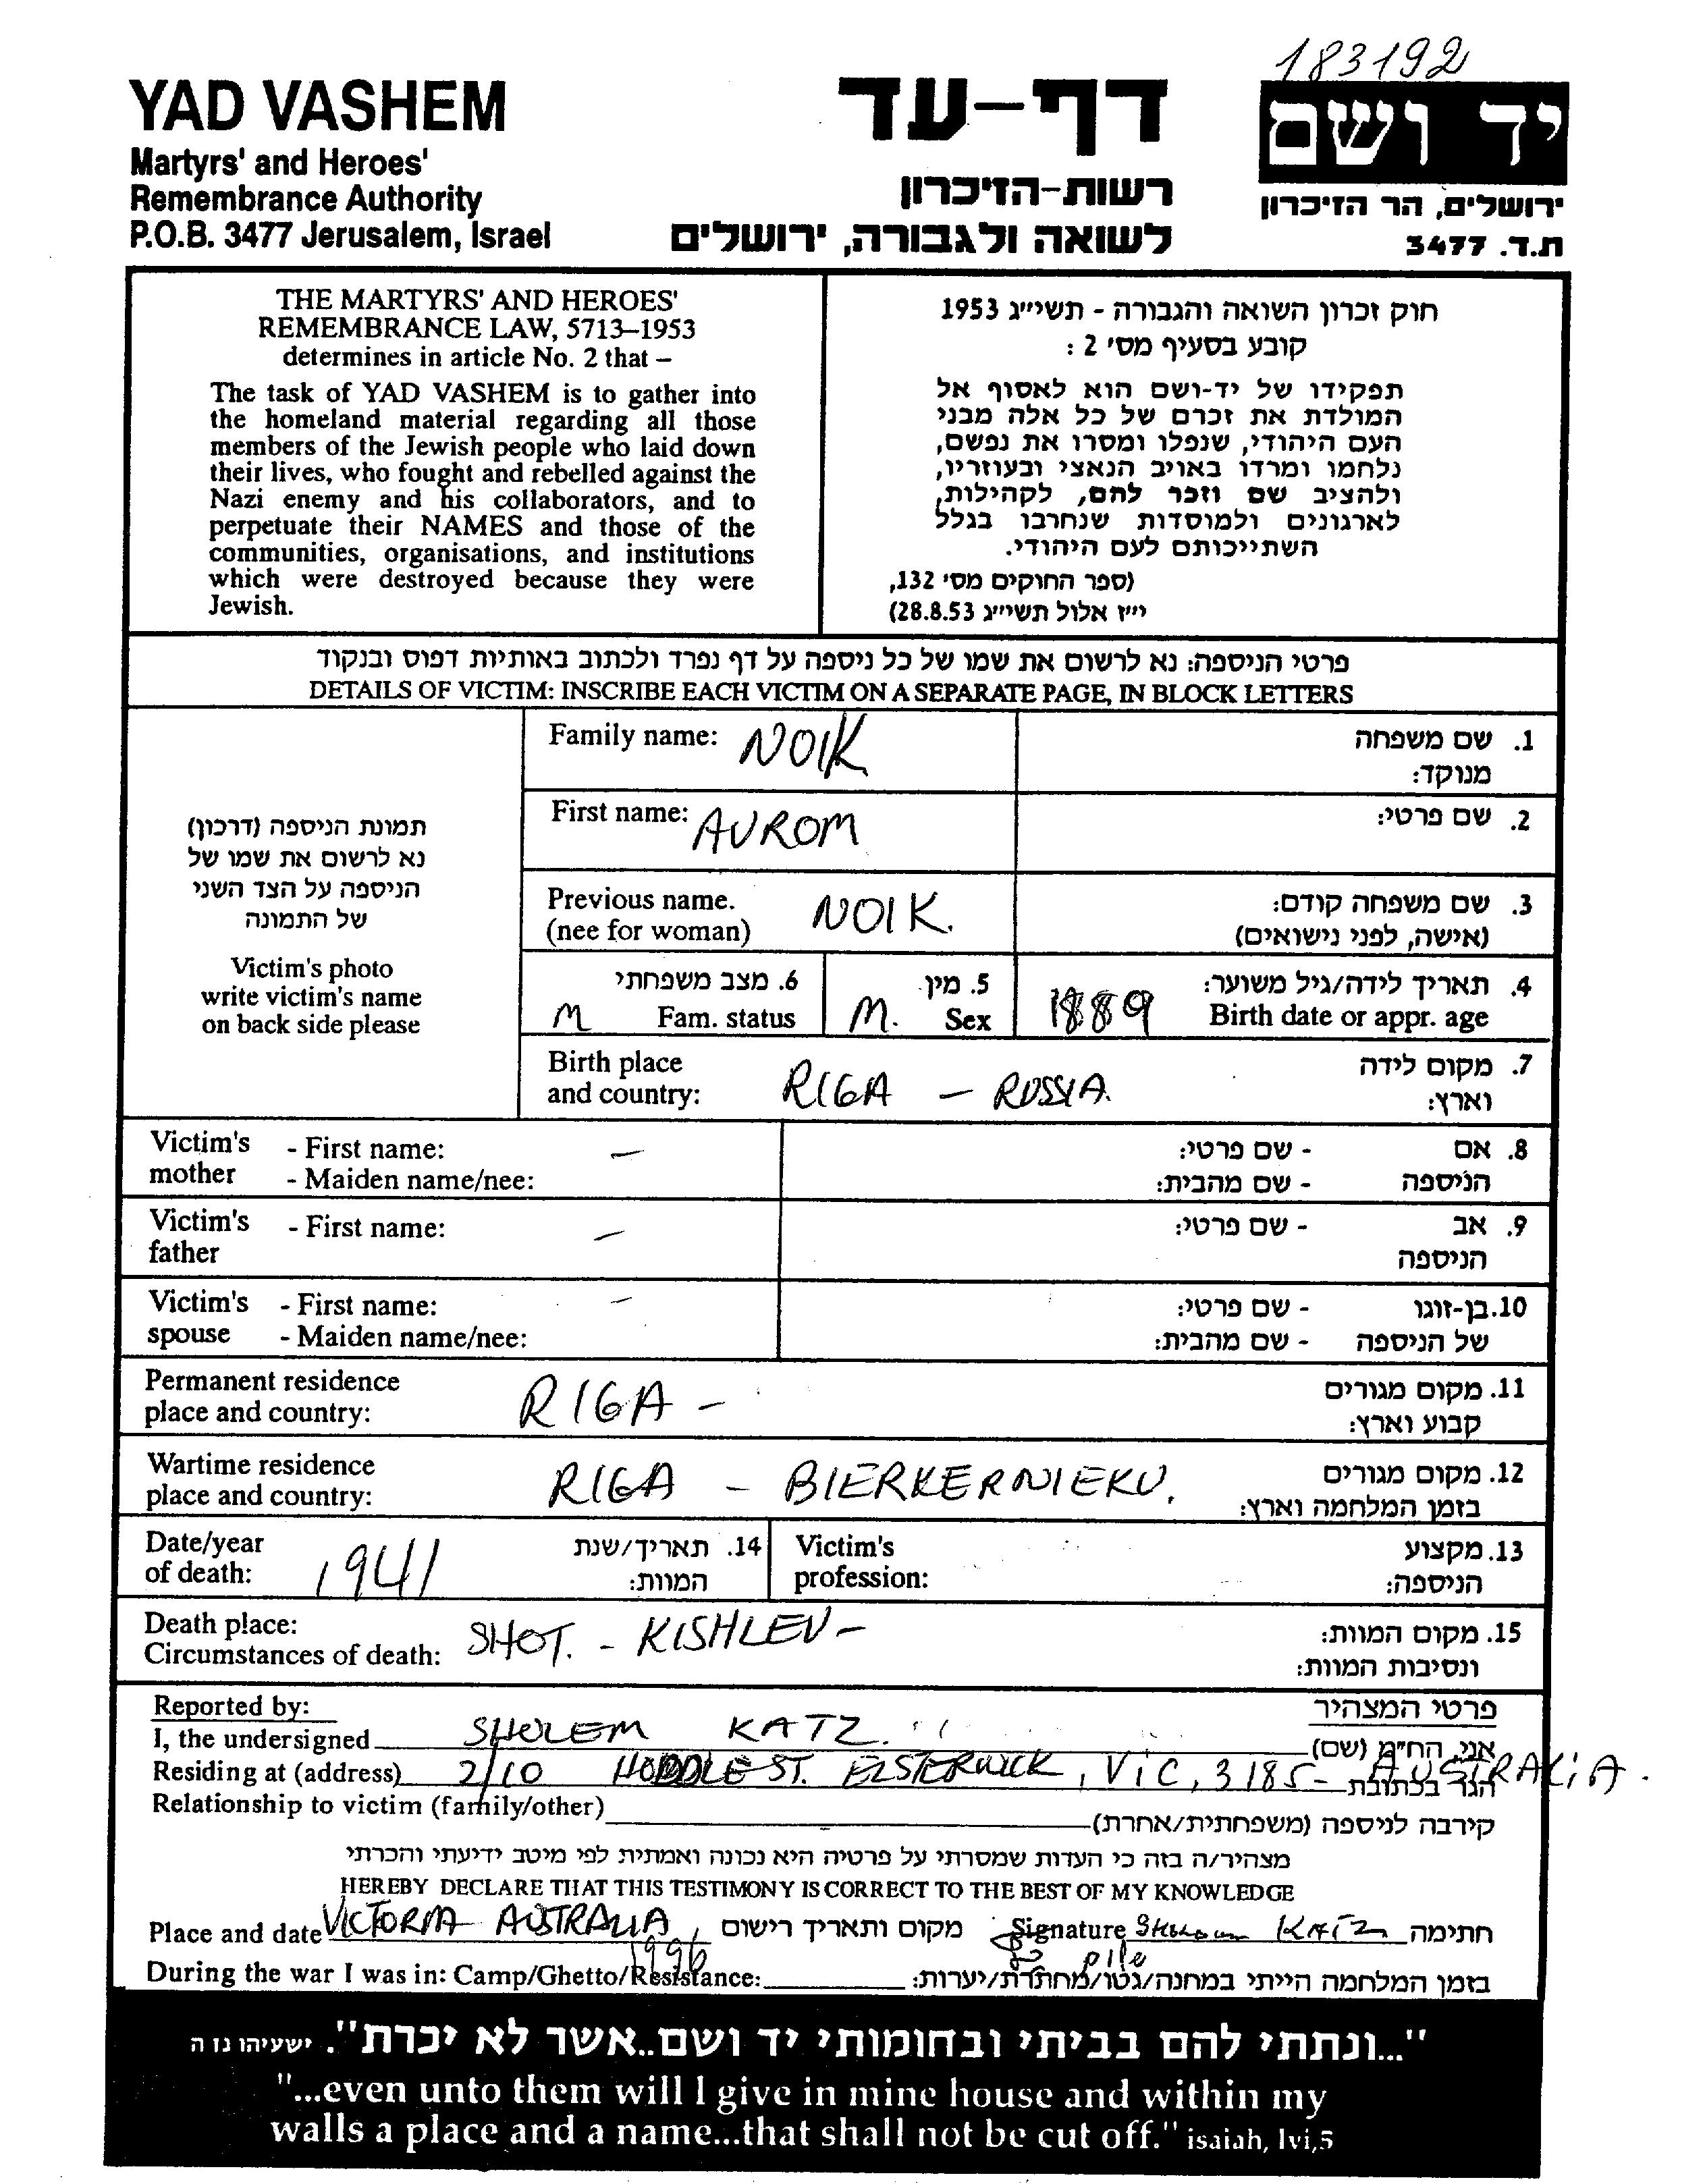 183192
YAD VASHEM
Martyrs' and Heroes'
Remembrance Authority
P.O.B. 3477 Jerusalem, Israel
דף-עד
רשות-הזיכרון
לשואה ולגבורה, ירושלים
יד ושם
ירושלים, הר הזיכרון
ת.ד. 3477
THE MARTYRS' AND HEROES'
REMEMBRANCE LAW, 5713–1953
determines in article No. 2 that –
The task of YAD VASHEM is to gather into
the homeland material regarding all those
members of the Jewish people who laid down
their lives, who fought and rebelled against the
Nazi enemy and his collaborators, and to
perpetuate their NAMES and those of the
communities, organisations, and institutions
which were destroyed because they were
Jewish.
חוק זכרון השואה והגבורה - תשי״ג 1953
קובע בסעיף מס׳ 2 :
תפקידו של יד-ושם הוא לאסוף אל
המולדת את זכרם של כל אלה מבני
העם היהודי, שנפלו ומסרו את נפשם,
נלחמו ומרדו באויב הנאצי ובעוזריו,
ולהציב שם וזכר להם, לקהילות,
לארגונים ולמוסדות שנחרבו בגלל
השתייכותם לעם היהודי.
(ספר החוקים מס׳ 132,
י״ז אלול תשי״ג 28.8.53)
פרטי הניספה: נא לרשום את שמו של כל ניספה על דף נפרד ולכתוב באותיות דפוס ובנקוד
DETAILS OF VICTIM: INSCRIBE EACH VICTIM ON A SEPARATE PAGE, IN BLOCK LETTERS
תמונת הניספה (דרכון)
נא לרשום את שמו של
הניספה על הצד השני
של התמונה
Victim's photo
write victim's name
on back side please
Family name: NOIK
1. שם משפחה
מנוקד:
First name: AVROM
2. שם פרטי:
Previous name. NOIK.
(nee for woman)
3. שם משפחה קודם:
(אישה, לפני נישואים)
6. מצב משפחתי
M Fam. status
5. מין
M. Sex
4. תאריך לידה/גיל משוער:
1889 Birth date or appr. age
Birth place
and country: RIGA – RUSSIA.
7. מקום לידה
וארץ:
Victim's - First name: –
mother - Maiden name/nee:
8. אם - שם פרטי:
הניספה - שם מהבית:
Victim's - First name: –
father
9. אב - שם פרטי:
הניספה
Victim's - First name: –
spouse - Maiden name/nee:
10. בן-זוגו - שם פרטי:
של הניספה - שם מהבית:
Permanent residence
place and country: RIGA –
11. מקום מגורים
קבוע וארץ:
Wartime residence
place and country: RIGA – BIERKERNIEKU.
12. מקום מגורים
בזמן המלחמה וארץ:
Date/year
of death: 1941
14. תאריך/שנת
המוות:
Victim's
profession:
13. מקצוע
הניספה:
Death place:
Circumstances of death: SHOT. - KISHLEV –
15. מקום המוות:
ונסיבות המוות:
Reported by:
פרטי המצהיר
I, the undersigned SHOLEM KATZ. אני, הח״מ (שם)
Residing at (address) 2/10 HODDLE ST. ELSTERWICK, VIC, 3185 - AUSTRALIA. הגר בכתובת
Relationship to victim (family/other) קירבה לניספה (משפחתית/אחרת)
מצהיר/ה בזה כי העדות שמסרתי על פרטיה היא נכונה ואמתית לפי מיטב ידיעתי והכרתי
HEREBY DECLARE THAT THIS TESTIMONY IS CORRECT TO THE BEST OF MY KNOWLEDGE
Place and date VICTORIA AUSTRALIA, 1996 מקום ותאריך רישום Signature KATZ חתימה
During the war I was in: Camp/Ghetto/Resistance: בזמן המלחמה הייתי במחנה/גטו/מחתרת/יערות:
"...ונתתי להם בביתי ובחומותי יד ושם..אשר לא יכרת". ישעיהו נז ה
"...even unto them will I give in mine house and within my
walls a place and a name...that shall not be cut off." isaiah, lvi,5